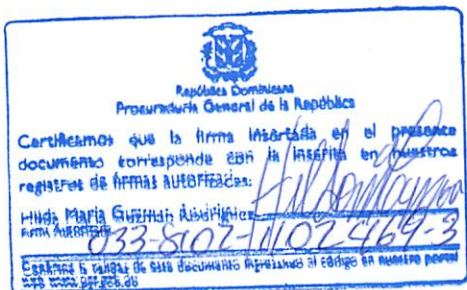 República Dominicana
Procuraduría General de la República
Certificamos que la firma insertada en el presente
documento corresponde con la inscrita en nuestros
registros de firmas autorizadas:
Hilda María Guzmán Rodríguez
Firma Autorizada
033-
Confirme la validez de este documento ingresando el código en nuestro portal
web www.pgr.gob.do